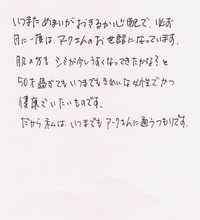 いつまためまいがおきるか心配で、必ず
月に一度は、アークさんのお世話になっています。
肌の方も シミが少しうすくなってきたかな？と
50才過ぎてもいつまでもきれいな女性でかつ
健康でいたいものです。
だから私は、いつまでもアークさんに通うつもりです。